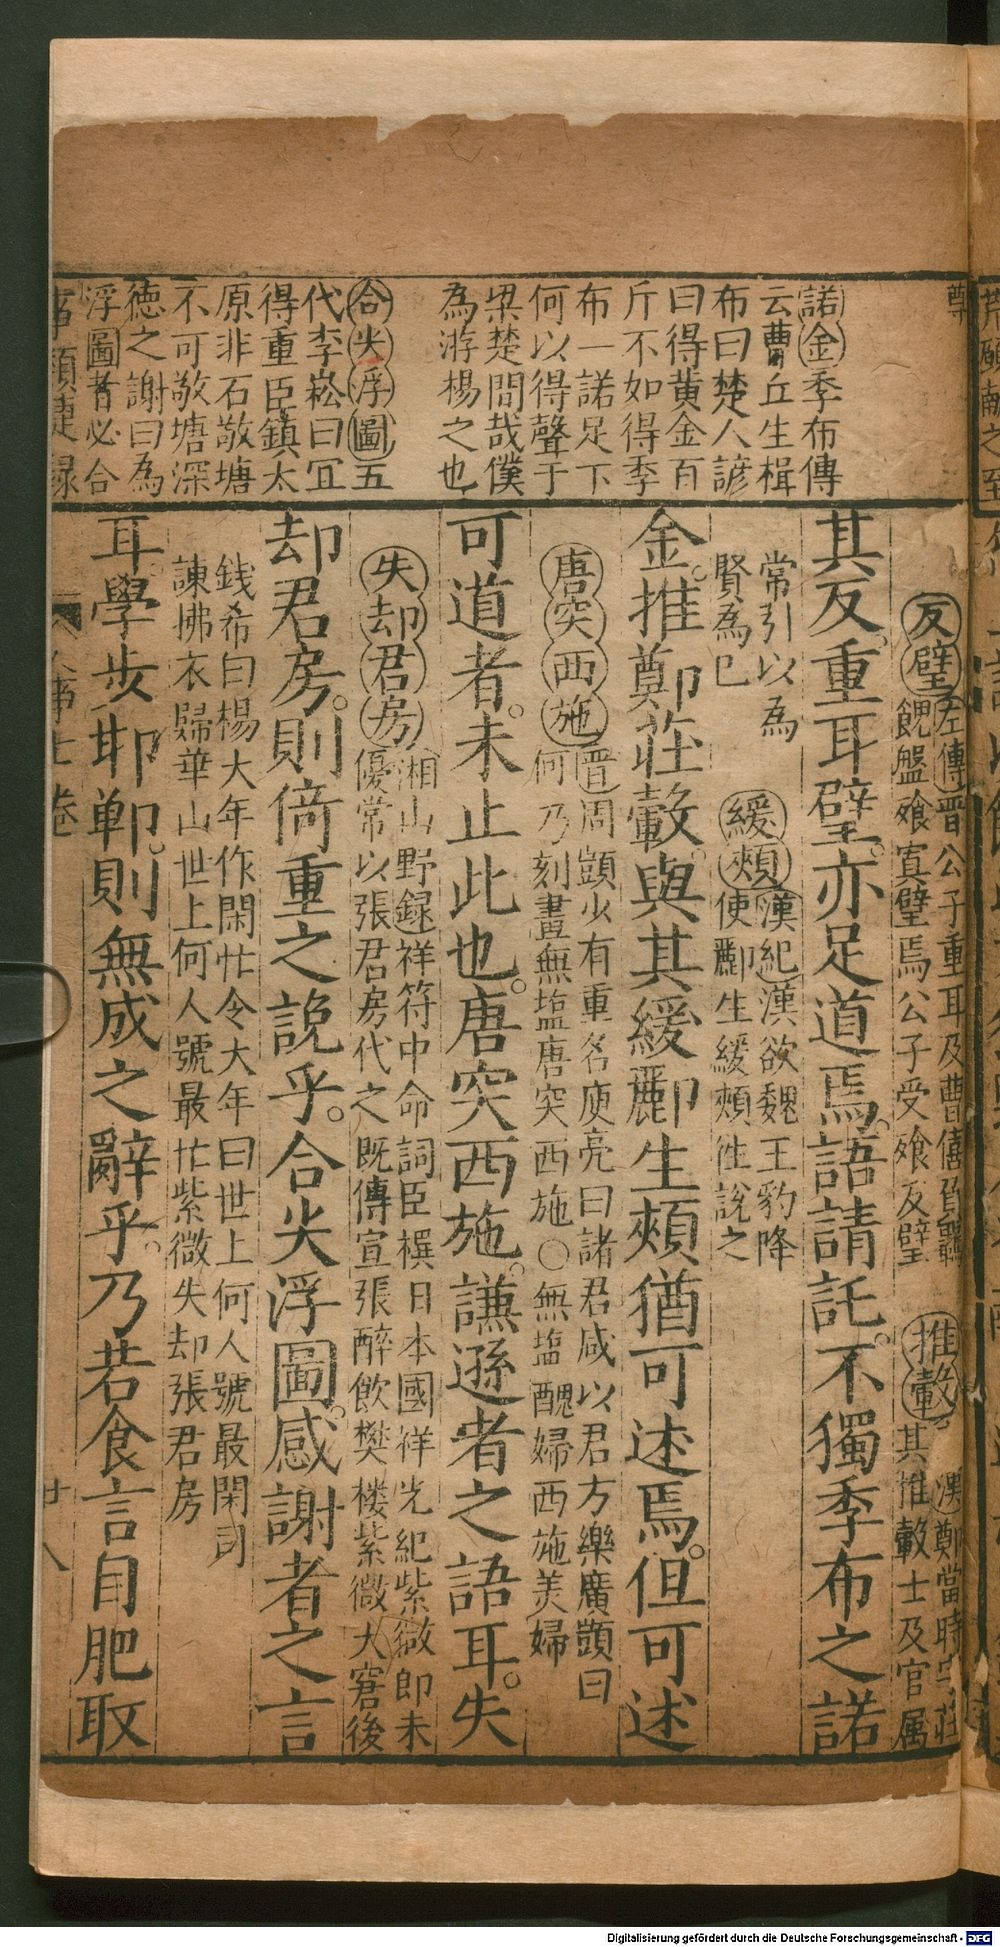 尊
諾金季布傳
云曹丘生楫
布曰楚人諺
曰得黄金百
斤不如得季
布一諾足下
何以得聲于
梁楚間哉僕
為游楊之也
合尖浮圖五
代李崧曰冝
得重臣鎮太
原非石敬塘
不可敬塘深
徳之謝曰為
浮圖者必合
反璧左傳晋公子重耳及曹僖負羈
餽盤飧寘璧焉公子受飧反璧
推轂漢鄭當時字荘
其推轂士及官属
其反重耳璧亦足道焉語請託不獨季布之諾
常引以為
賢為已
緩頰漢紀漢欲魏王豹降
使酈生緩頰徃說之
金推鄭莊轂與其緩酈生頰猶可述焉但可述
唐突西施晋周顗少有重名庾亮曰諸君咸以君方樂廣顗曰
何乃刻畫無塩唐突西施○無塩醜婦西施美婦
可道者未止此也唐突西施謙遜者之語耳失
失却君房湘山野録祥符中命詞臣撰日本國祥光紀紫微即未
優常以張君房代之既傳宣張醉飲樊楼紫微大窘後
却君房則倚重之說乎合尖浮圖感謝者之言
錢希曰楊大年作閑忙令大年曰世上何人號最閑司
諫拂衣歸華山世上何人號最忙紫微失却張君房
耳學步邯鄲則無成之辭乎乃若食言自肥取
事類捷録
人事七卷
廿八
Digitalisierung gefördert durch die Deutsche Forschungsgemeinschaft - DFG